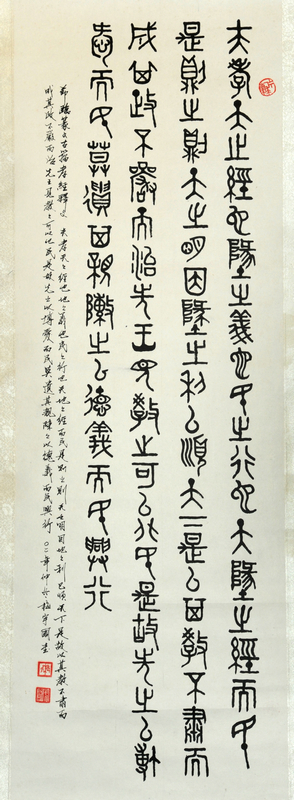 夫孝天之經也地之義也民之行也天地之經而民
是則之則天之明因地之利以順天下是以其教不肅而
成其政不嚴而治先王見教之可以化民是故先之以博
愛而民莫遺其親陳之以德義而民興行
孝經釋文夫孝天之經也地之義也民之行也天地之經而民是則之則天之明因地之利以順天下是故以其教不肅而
成其政不嚴而治先王見教之可以化民是故先之以博愛而民莫遺其親陳之以德義而民興行